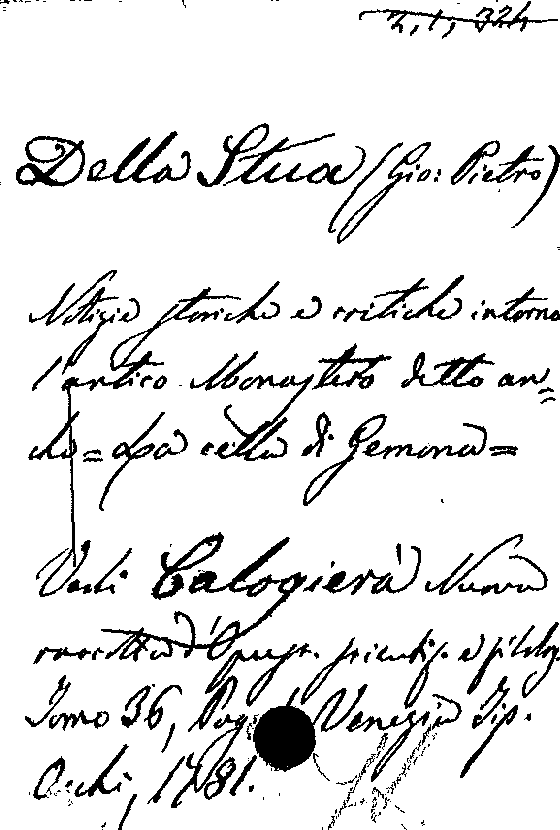 2, 1, 324
Della Stua (Gio: Pietro)
Notizie storiche e critiche intorno
l'antico Monastero detto an=
che = La cella di Gemona =
Vedi Calogierà Nuova
raccolta d'Opusc. scientif. e filolog
Tomo 36, Pag. Venezia Tip.
Occhi, 1781.